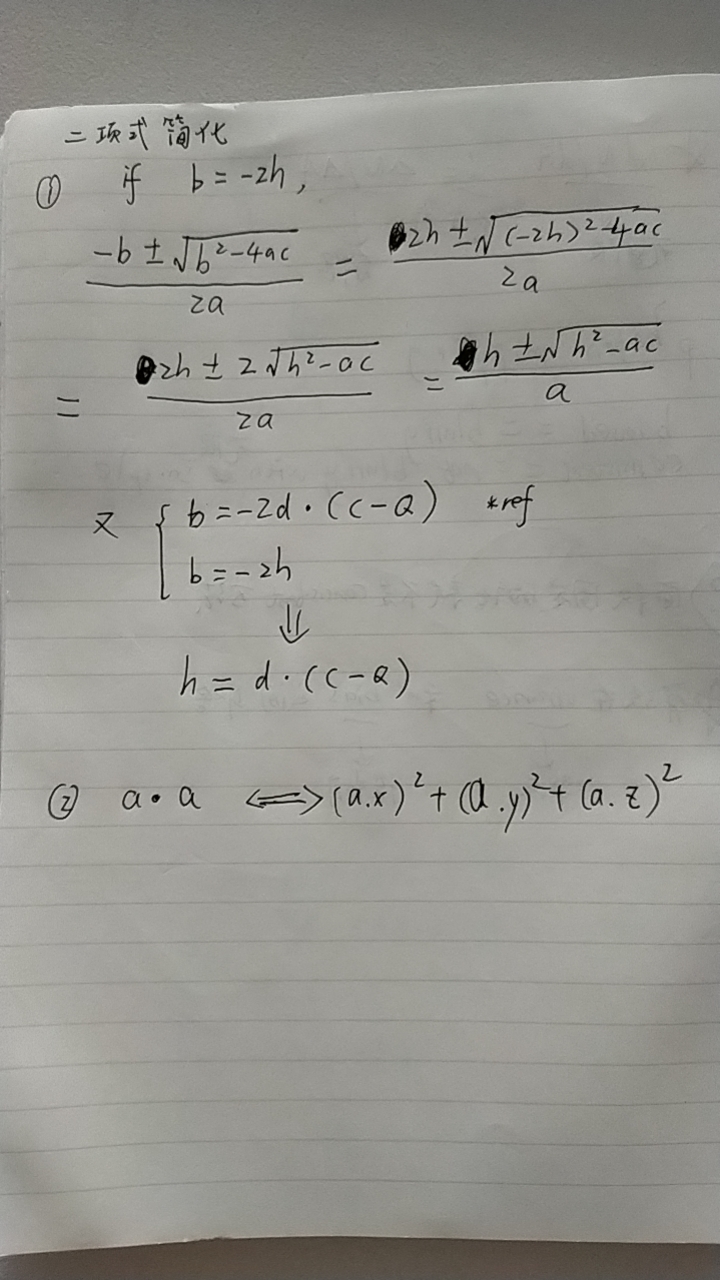 二项式简化
① if b = -2h,
\frac{-b ± \sqrt{b²-4ac}}{2a} = \frac{2h ± \sqrt{(-2h)²-4ac}}{2a}
= \frac{2h ± 2\sqrt{h²-ac}}{2a} = \frac{h ± \sqrt{h²-ac}}{a}
又 { b = -2d · (C-Q) *ref
b = -2h
⇓
h = d · (C-Q)
② a · a ⟺ (a.x)² + (a.y)² + (a.z)²